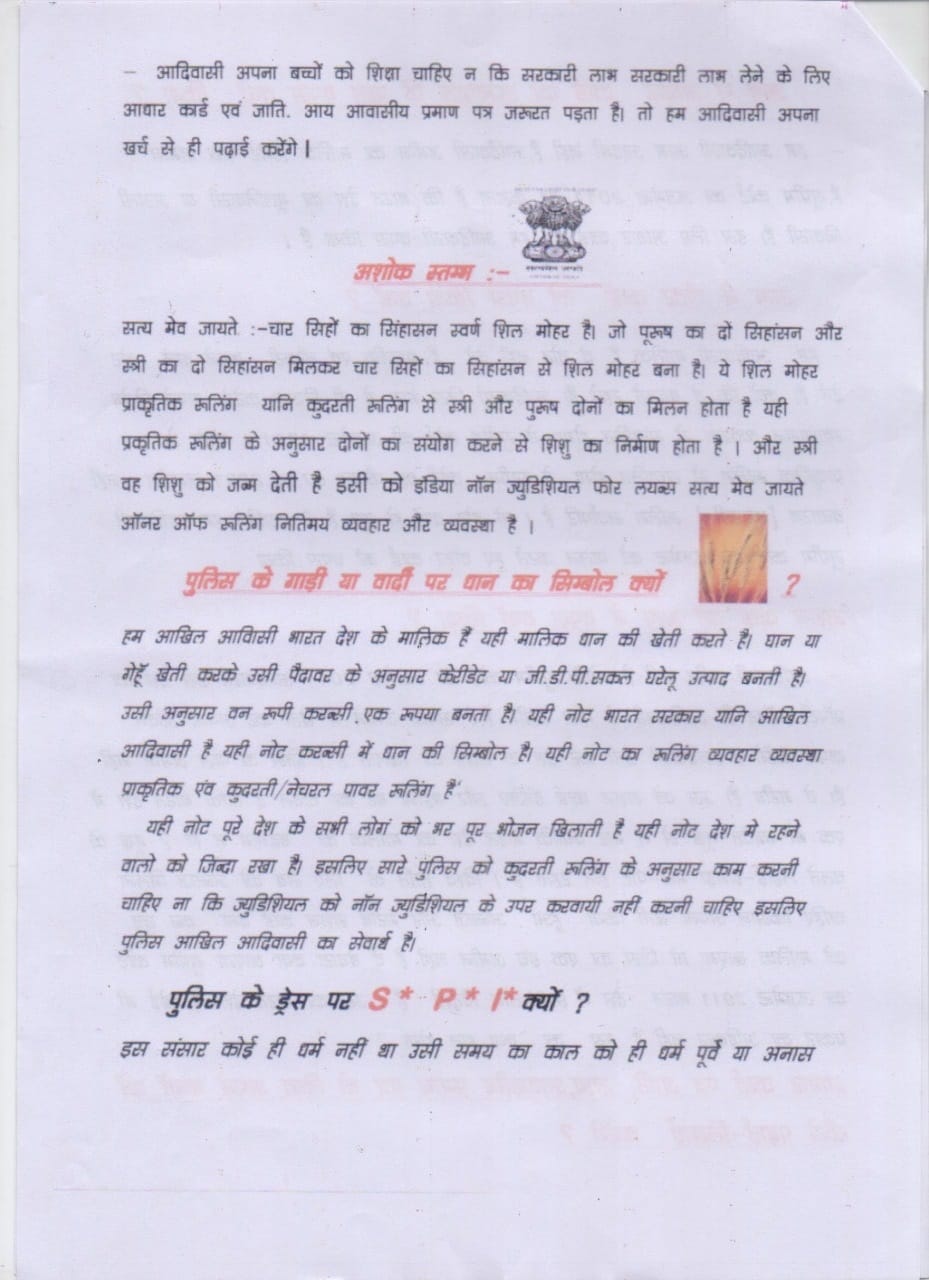 - आदिवासी अपना बच्चों को शिक्षा चाहिए न कि सरकारी लाभ सरकारी लाभ लेने के लिए
आधार कार्ड एवं जाति. आय आवासीय प्रमाण पत्र जरूरत पड़ता है। तो हम आदिवासी अपना
खर्च से ही पढ़ाई करेंगे।
अशोक स्तम्भ :-
सत्य मेव जायते :-चार सिहों का सिंहासन स्वर्ण शिल मोहर है। जो पूरूष का दों सिहांसन और
स्त्री का दो सिहांसन मिलकर चार सिहों का सिहांसन से शिल मोहर बना है। ये शिल मोहर
प्राकृतिक रूलिंग यानि कुदरती रूलिंग से स्त्री और पुरूष दोनों का मिलन होता है यही
प्रकृतिक रूलिंग के अनुसार दोनों का संयोग करने से शिशु का निर्माण होता है । और स्त्री
वह शिशु को जन्म देती है इसी को इंडिया नॉन ज्युडिशियल फोर लयन्स सत्य मेव जायते
ऑनर ऑफ रूलिंग नितिमय व्यवहार और व्यवस्था है ।
पुलिस के गाड़ी या वार्दी पर धान का सिम्बोल क्यों ?
हम आखिल आविासी भारत देश के मालिक हैं यही मालिक धान की खेती करते है। धान या
गेहूँ खेती करके उसी पैदावर के अनुसार केरीडेट या जी.डी.पी.सकल घरेलू उत्पाद बनती है।
उसी अनुसार वन रूपी करन्सी एक रूपया बनता है। यही नोट भारत सरकार यानि आखिल
आदिवासी है यही नोट करन्सी में धान की सिम्बोल है। यही नोट का रूलिंग व्यवहार व्यवस्था
प्राकृतिक एंव कुदरती/नेचरल पावर रूलिंग है'
यही नोट पूरे देश के सभी लोगं को भर पूर भोजन खिलाती है यही नोट देश मे रहने
वालो को जिन्दा रखा है। इसलिए सारे पुलिस को कुदरती रूलिंग के अनुसार काम करनी
चाहिए ना कि ज्युडिशियल को नॉन ज्युडिशियल के उपर करवायी नहीं करनी चाहिए इसलिए
पुलिस आखिल आदिवासी का सेवार्थ है।
पुलिस के ड्रेस पर S* P* I* क्यों ?
इस संसार कोई ही धर्म नहीं था उसी समय का काल को ही धर्म पूर्वे या अनास